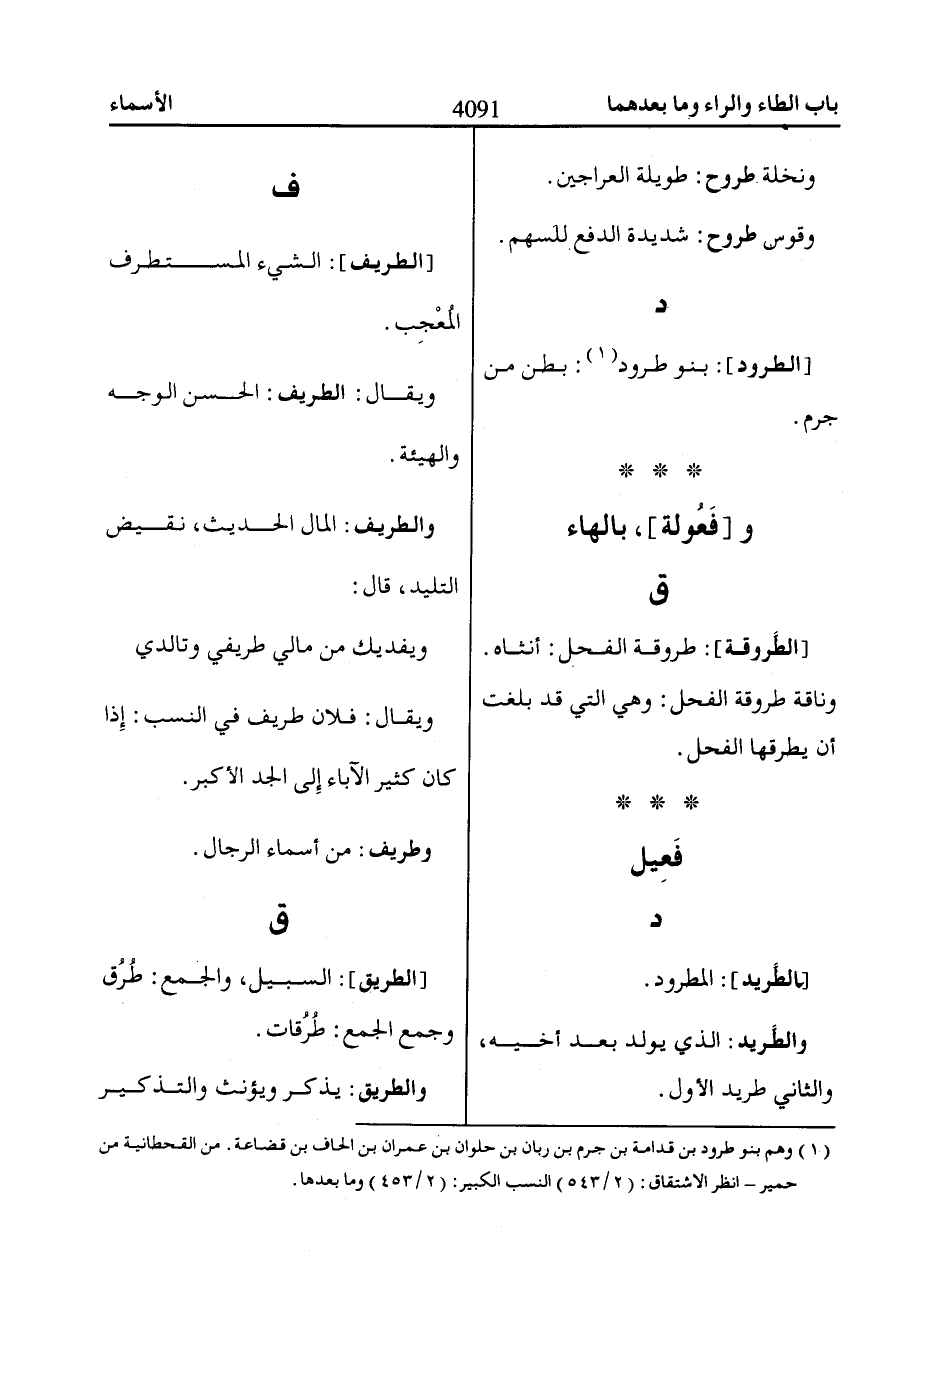 باب الطاء والراء وما بعدهما
4091
الأسماء
ونخلة طروح: طويلة العراجين.
وقوس طروح: شديدة الدفع للسهم.
د
[الطرود]: بنو طرود(١): بطن من
جرم.
* * *
و [فَعُولة]، بالهاء
ق
[الطَّروقة]: طروقة الفحل: أنثاه.
وناقة طروقة الفحل: وهي التي قد بلغت
أن يطرقها الفحل.
* * *
فَعِيل
د
[الطَّريد]: المطرود.
والطَّريد: الذي يولد بعد أخيه،
والثاني طريد الأول.
ف
[الطريف]: الشيء المستطرف
المُعْجِب.
ويقال: الطريف: الحسن الوجه
والهيئة.
والطريف: المال الحديث، نقيض
التليد، قال:
ويفديك من مالي طريفي وتالدي
ويقال: فلان طريف في النسب: إِذا
كان كثير الآباء إِلى الجد الأكبر.
وطريف: من أسماء الرجال.
ق
[الطريق]: السبيل، والجمع: طُرُق
وجمع الجمع: طُرُقات.
والطريق: يذكر ويؤنث والتذكير
(١) وهم بنو طرود بن قدامة بن جرم بن ربان بن حلوان بن عمران بن الحاف بن قضاعة. من القحطانية من
حمير – انظر الاشتقاق: (٢/ ٥٤٣) النسب الكبير: (٢/ ٤٥٣) وما بعدها.